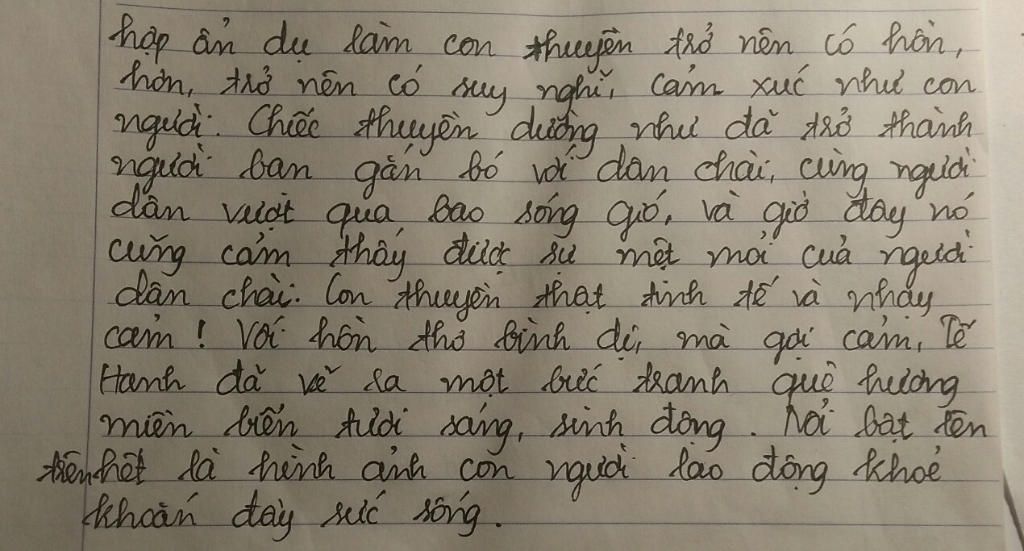 hợp ẩn dụ làm con thuyền trở nên có hồn,
hơn, trở nên có suy nghĩ, cảm xúc như con
người. Chiếc thuyền dường như đã trở thành
người bạn gắn bó với dân chài, cùng người
dân vượt qua bao sóng gió, và giờ đây nó
cũng cảm thấy được sự mệt mỏi của người
dân chài. Con thuyền thật tinh tế và nhạy
cảm! Với hồn thơ bình dị, mà gợi cảm, Tế
Hanh đã vẽ ra một bức tranh quê hương
miền biển tươi sáng, sinh động. Nổi bật lên
trên hết là hình ảnh con người lao động khoẻ
khoắn đầy sức sống.